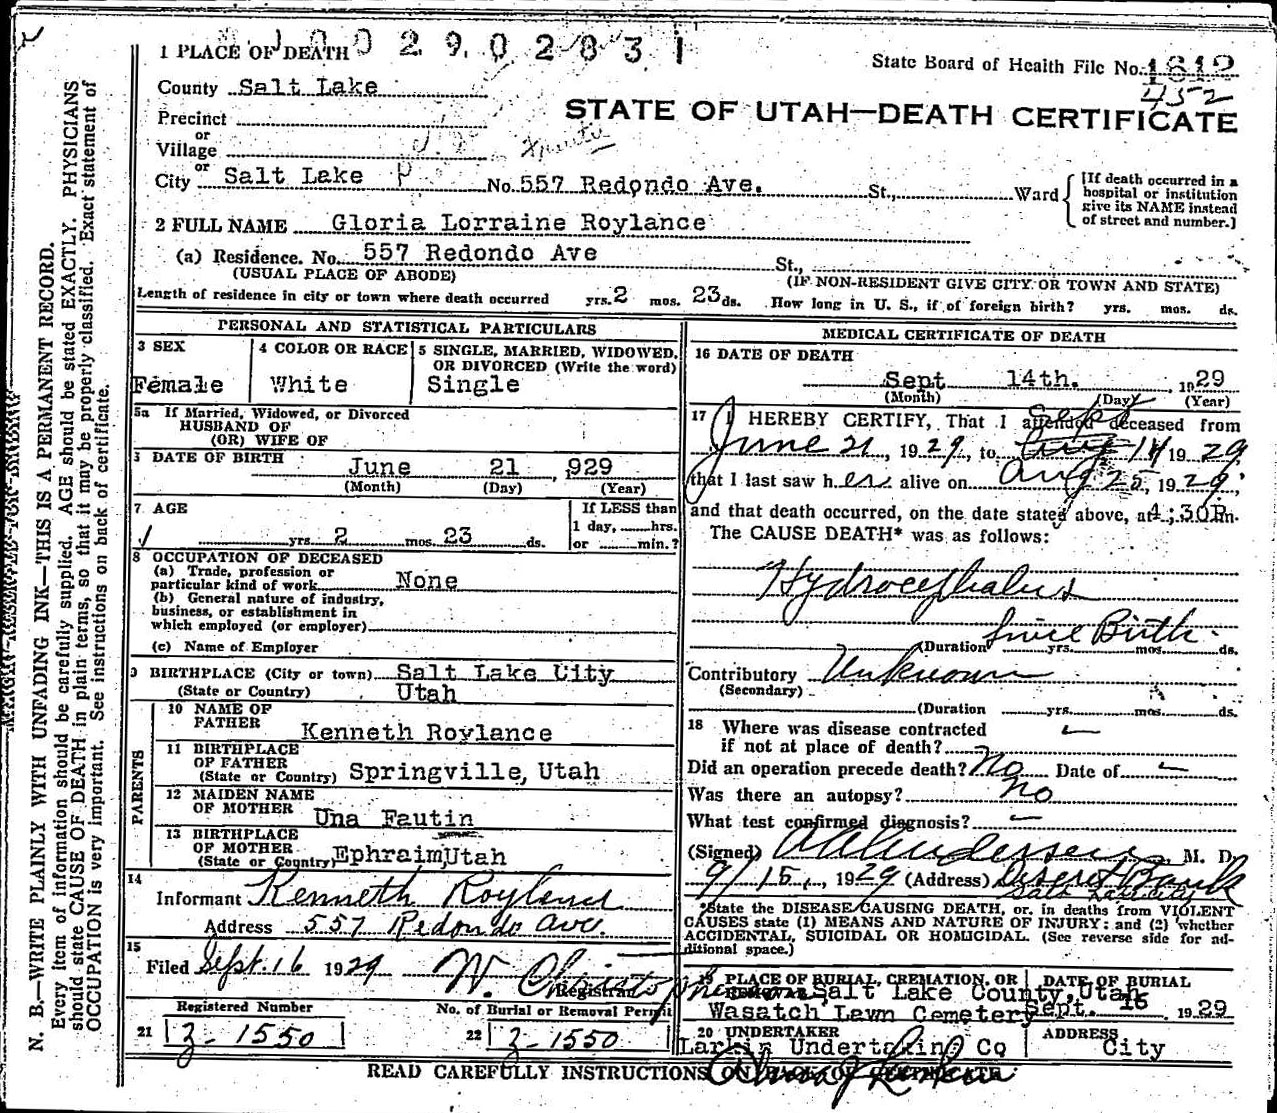 1 PLACE OF DEATH 0 0 2 9 0 2 8 3 1
State Board of Health File No. 1812
452
County Salt Lake
STATE OF UTAH—DEATH CERTIFICATE
Precinct
or
Village
or
City Salt Lake No. 557 Redondo Ave. St., Ward
[If death occurred in a hospital or institution give its NAME instead of street and number.]
2 FULL NAME Gloria Lorraine Roylance
(a) Residence. No. 557 Redondo Ave St.,
(USUAL PLACE OF ABODE) (IF NON-RESIDENT GIVE CITY OR TOWN AND STATE)
Length of residence in city or town where death occurred yrs. 2 mos. 23 ds. How long in U. S., if of foreign birth? yrs. mos. ds.
PERSONAL AND STATISTICAL PARTICULARS
3 SEX
Female
4 COLOR OR RACE
White
5 SINGLE, MARRIED, WIDOWED,
OR DIVORCED (Write the word)
Single
5a If Married, Widowed, or Divorced
HUSBAND OF
(OR) WIFE OF
DATE OF BIRTH June 21 ,929
(Month) (Day) (Year)
7 AGE
yrs. 2 mos. 23 ds.
If LESS than
1 day, hrs.
or min.?
8 OCCUPATION OF DECEASED
(a) Trade, profession or
particular kind of work None
(b) General nature of industry,
business, or establishment in
which employed (or employer)
(c) Name of Employer
9 BIRTHPLACE (City or town) Salt Lake City
(State or Country) Utah
PARENTS
10 NAME OF
FATHER Kenneth Roylance
11 BIRTHPLACE
OF FATHER
(State or Country) Springville, Utah
12 MAIDEN NAME
OF MOTHER Una Fautin
13 BIRTHPLACE
OF MOTHER
(State or Country) Ephraim, Utah
14
Informant Kenneth Roylance
Address 557 Redondo Ave.
15
Filed Sept. 16 1929 W. Christopherson
Registrar
Registered Number No. of Burial or Removal Permit
21 3-1550 22 3-1550
MEDICAL CERTIFICATE OF DEATH
16 DATE OF DEATH
Sept 14th. , 1929
(Month) (Day) (Year)
17 I HEREBY CERTIFY, That I attended deceased from
Sept
June 21, 1929, to Aug 14 1929,
that I last saw her alive on Aug 25, 1929,
and that death occurred, on the date stated above, at 4:30P.m.
The CAUSE DEATH* was as follows:
Hydrocephalus
Since Birth
(Duration yrs. mos. ds.
Contributory Unknown
(Secondary)
(Duration yrs. mos. ds.
18 Where was disease contracted
if not at place of death?
Did an operation precede death? No Date of
Was there an autopsy? No
What test confirmed diagnosis?
(Signed) M. D.
9/15, 1929 (Address) Deseret Bank
Salt Lake City
*State the DISEASE CAUSING DEATH, or, in deaths from VIOLENT
CAUSES state (1) MEANS AND NATURE OF INJURY: and (2) whether
ACCIDENTAL, SUICIDAL OR HOMICIDAL. (See reverse side for ad-
ditional space.)
19 PLACE OF BURIAL, CREMATION, OR
REMOVAL Salt Lake County, Utah
Wasatch Lawn Cemetery
DATE OF BURIAL
Sept. 16 1929
20 UNDERTAKER
Larkin Undertaking Co
ADDRESS
City
READ CAREFULLY INSTRUCTIONS ON BACK OF CERTIFICATE
N. B.—WRITE PLAINLY WITH UNFADING INK—THIS IS A PERMANENT RECORD.
Every item of information should be carefully supplied. AGE should be stated EXACTLY. PHYSICIANS
should state CAUSE OF DEATH in plain terms, so that it may be properly classified. Exact statement of
OCCUPATION is very important. See instructions on back of certificate.
MARGIN RESERVED FOR BINDING